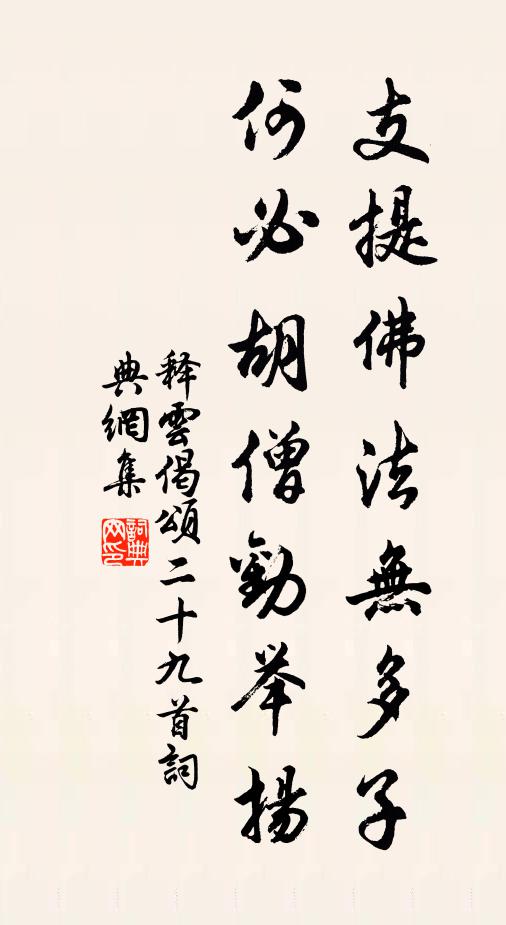 支提佛法無多子
何必胡僧勸举揚
释雲偈頌二十九首詞
典網集
詞典網印